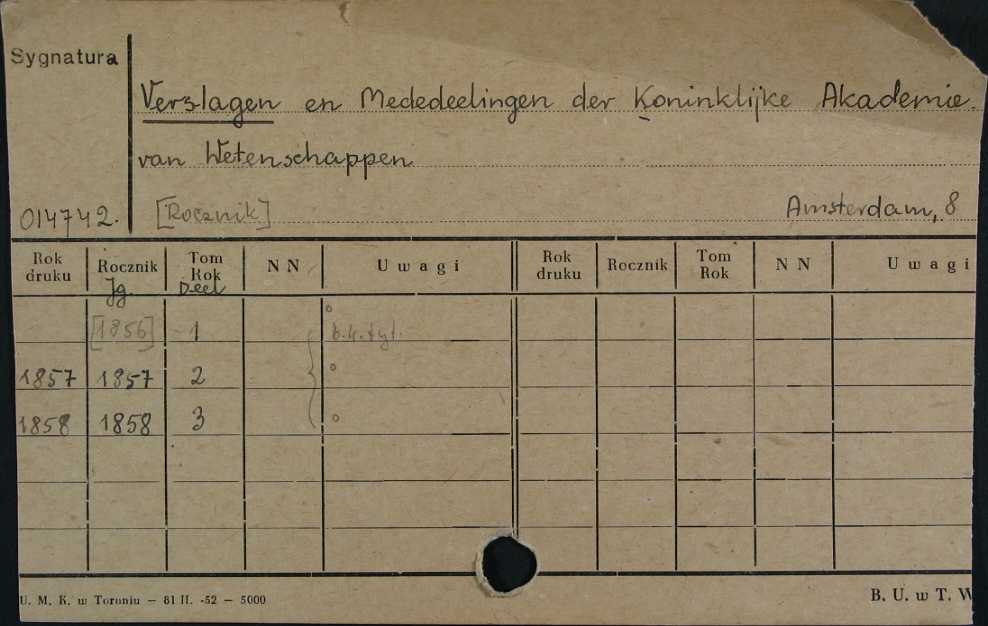 Sygnatura
Verslagen en Mededeelingen der Koninklijke Akademie
van Wetenschappen
014742. [Rocznik] Amsterdam, 8
Rok druku Rocznik Tom Rok N N U w a g i Rok druku Rocznik Tom Rok N N U w a g i
Jg. Deel
[1856] 1 b.k.tyt.
1857 1857 2
1858 1858 3
U. M. K. w Toruniu — 81 II. -52 — 5000 B. U. w T. W